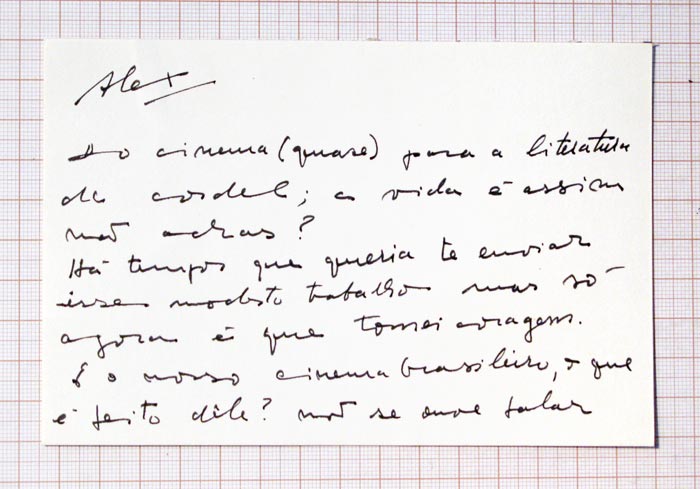 Alex
Do cinema (quase) para a literatura
de cordel; a vida é assim
não achas?
Há tempos que queria te enviar
esse modesto trabalho mas só
agora é que tomei coragem.
E o nosso cinema brasileiro, o que
é feito dele? não se ouve falar